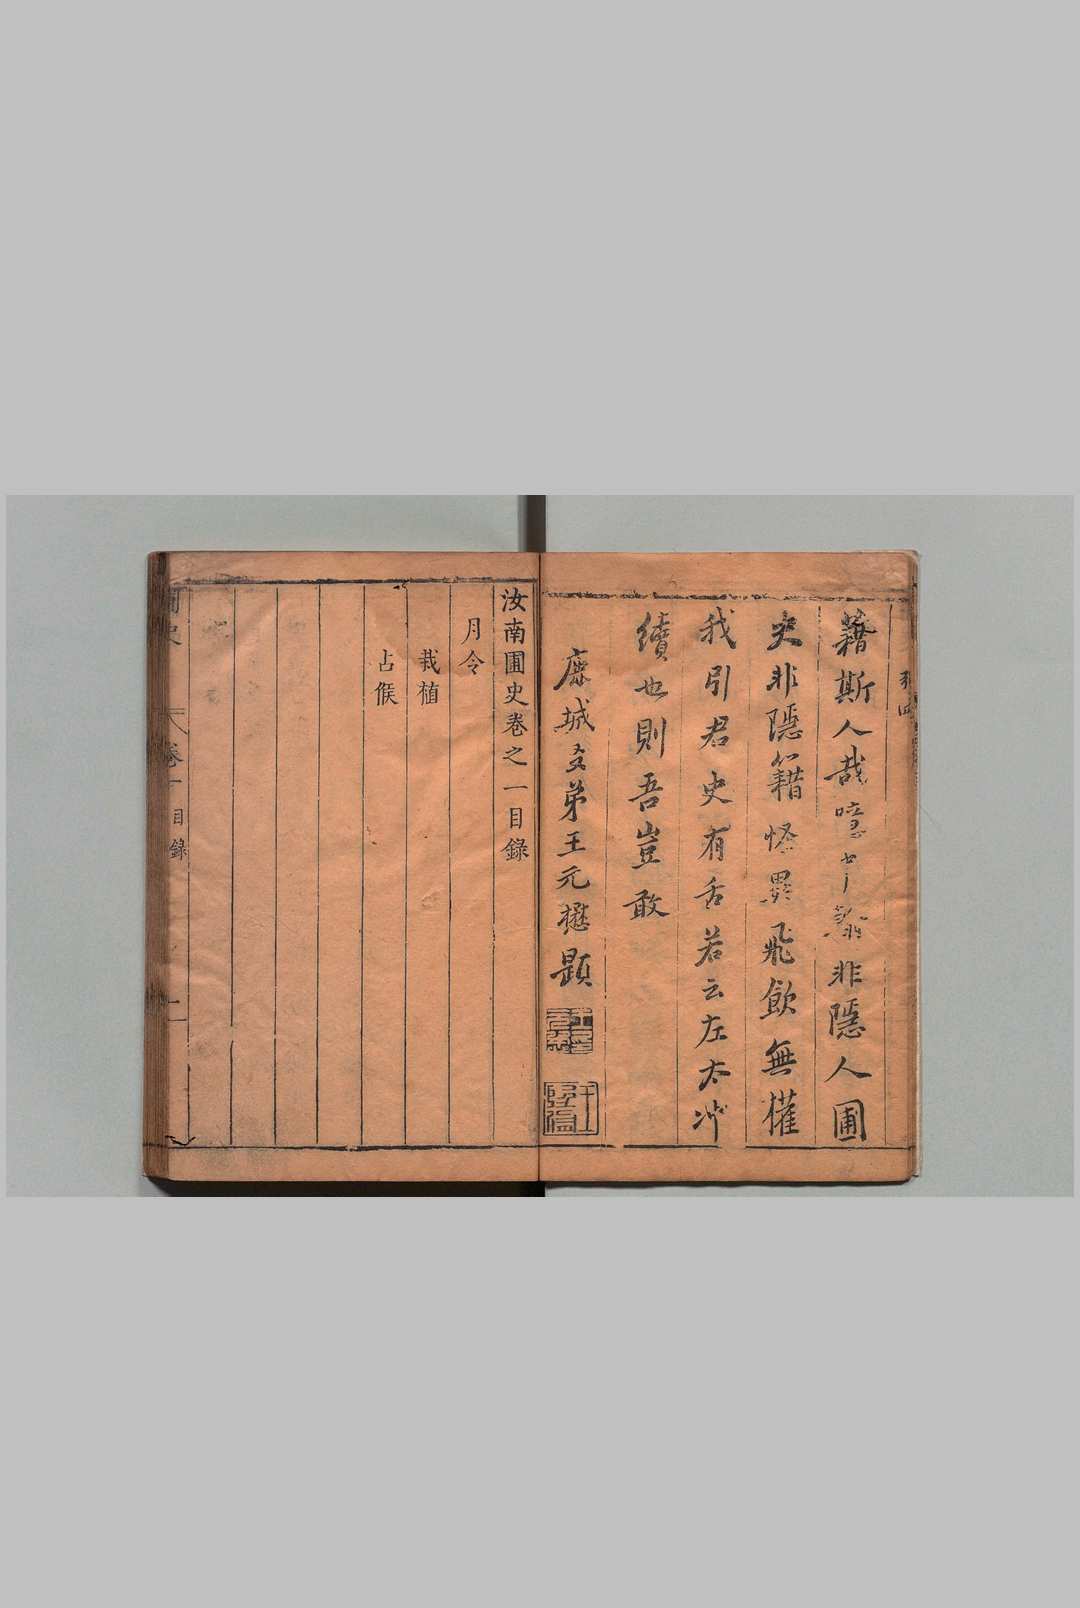 藉斯人哉噫非隱人圃
史非隱籍怪異飛飲無權
我引君史有舌若云左太冲
續也則吾豈敢
鹿城友弟王元懋題
汝南圃史卷之一目錄
月令
栽植
占候
圃史
卷一
目錄
一